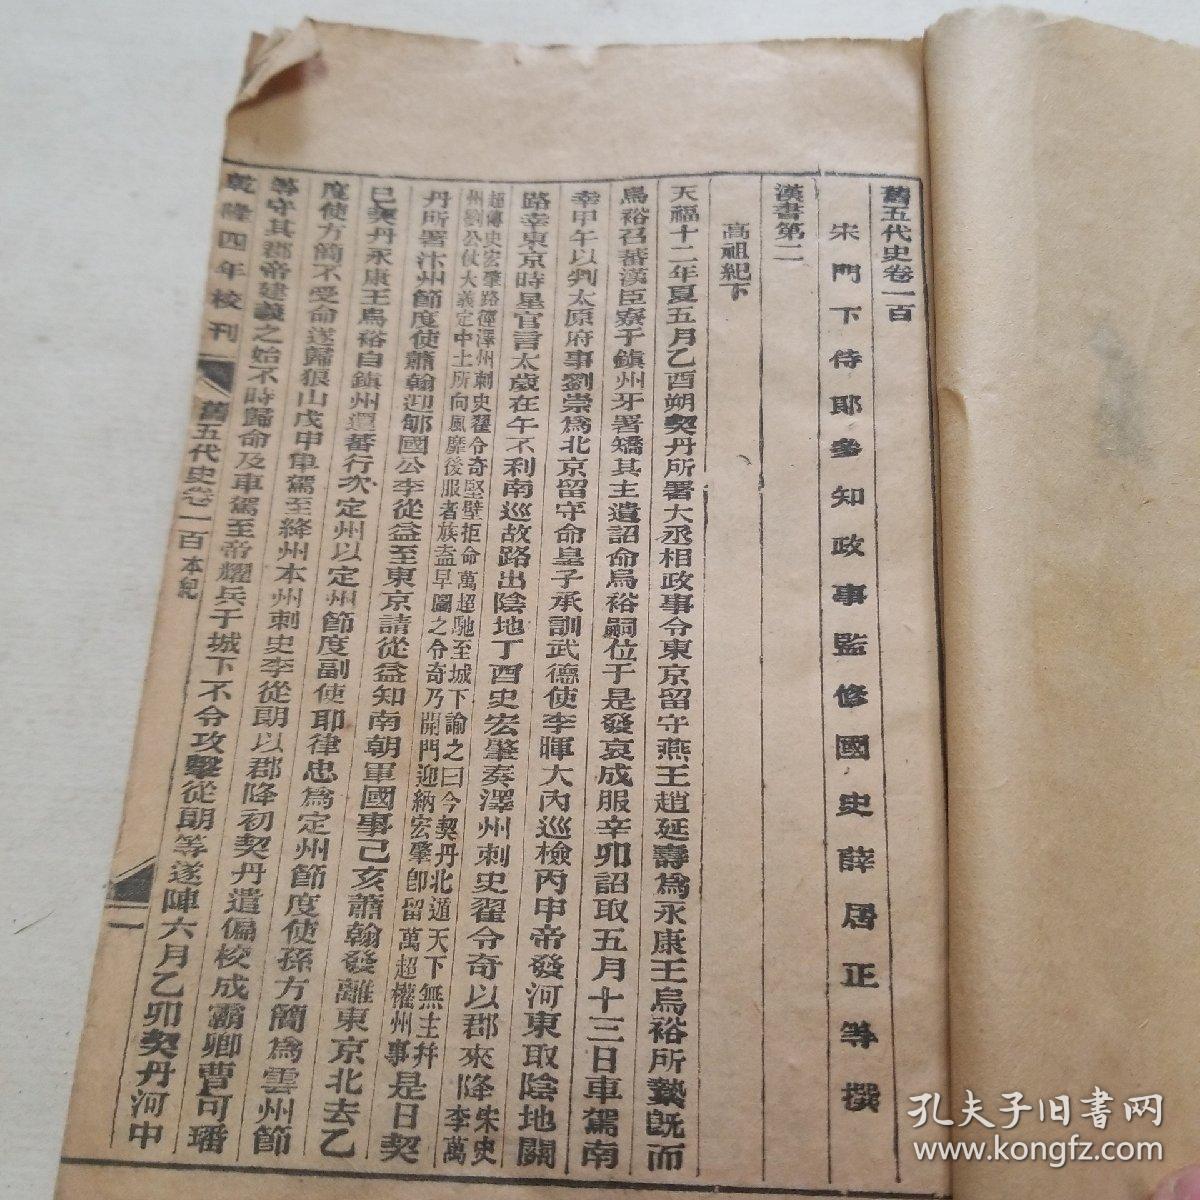 舊五代史卷一百
宋門下侍郎參知政事監修國史薛居正等撰
漢書第二
高祖紀下
天福十二年夏五月乙酉朔契丹所署大丞相政事令東京留守燕王趙延壽爲永康王烏裕所縶既而
烏裕召蕃漢臣寮于鎮州牙署矯其主遺詔命烏裕嗣位于是發哀成服辛卯詔取五月十三日車駕南
幸甲午以判太原府事劉崇爲北京留守命皇子承訓武德使李暉大內巡檢丙申帝發河東取陰地關
路幸東京時星官言太歲在午不利南巡故路出陰地丁酉史宏肇奏澤州刺史翟令奇以郡來降宋史李萬
超傳史宏肇路徑澤州刺史翟令奇堅壁拒命萬超馳至城下諭之曰今契丹北遁天下無主幷
州劉公仗大義定中土所向風靡後服者族盍早圖之令奇乃開門迎納宏肇即留萬超權州事是日契
丹所署汴州節度使蕭翰迎郇國公李從益至東京請從益知南朝軍國事己亥蕭翰發離東京北去乙
巳契丹永康王烏裕自鎮州還蕃行次定州以定州節度副使耶律忠爲定州節度使孫方簡爲雲州節
度使方簡不受命遂歸狼山戊申車駕至絳州本州刺史李從朗以郡降初契丹遣偏校成霸卿曹可璠
等守其郡帝建義之始不時歸命及車駕至帝耀兵于城下不令攻擊從朗等遂降六月乙卯契丹河中
乾隆四年校刊
舊五代史卷一百 本紀
一
孔夫子旧书网
www.kongfz.com